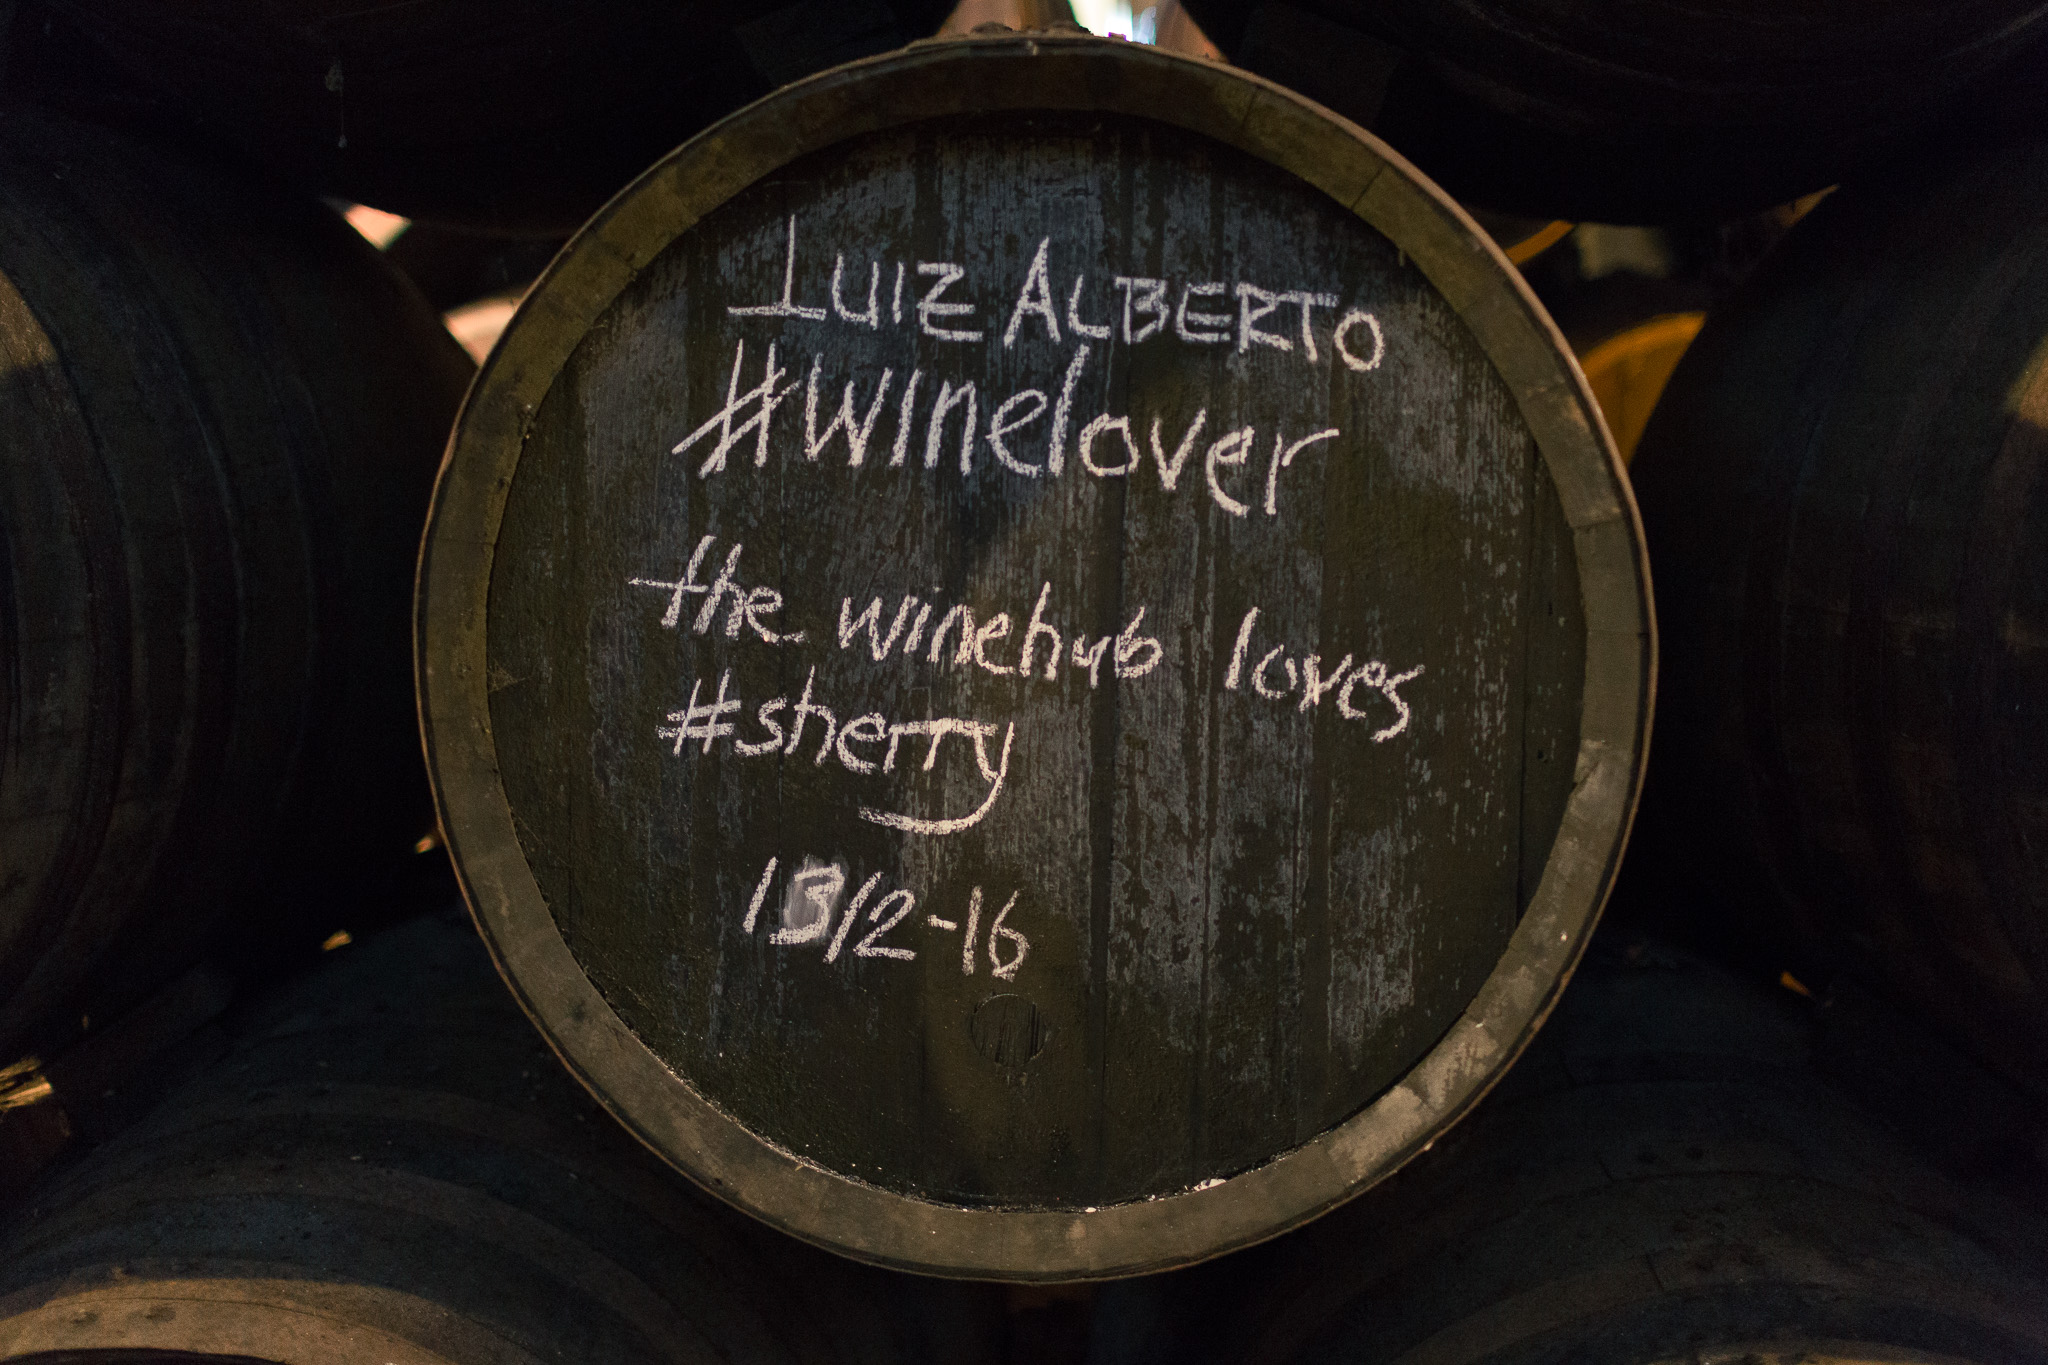 LUIZ ALBERTO
#winelover
the winehub loves
#sherry
13/2-16